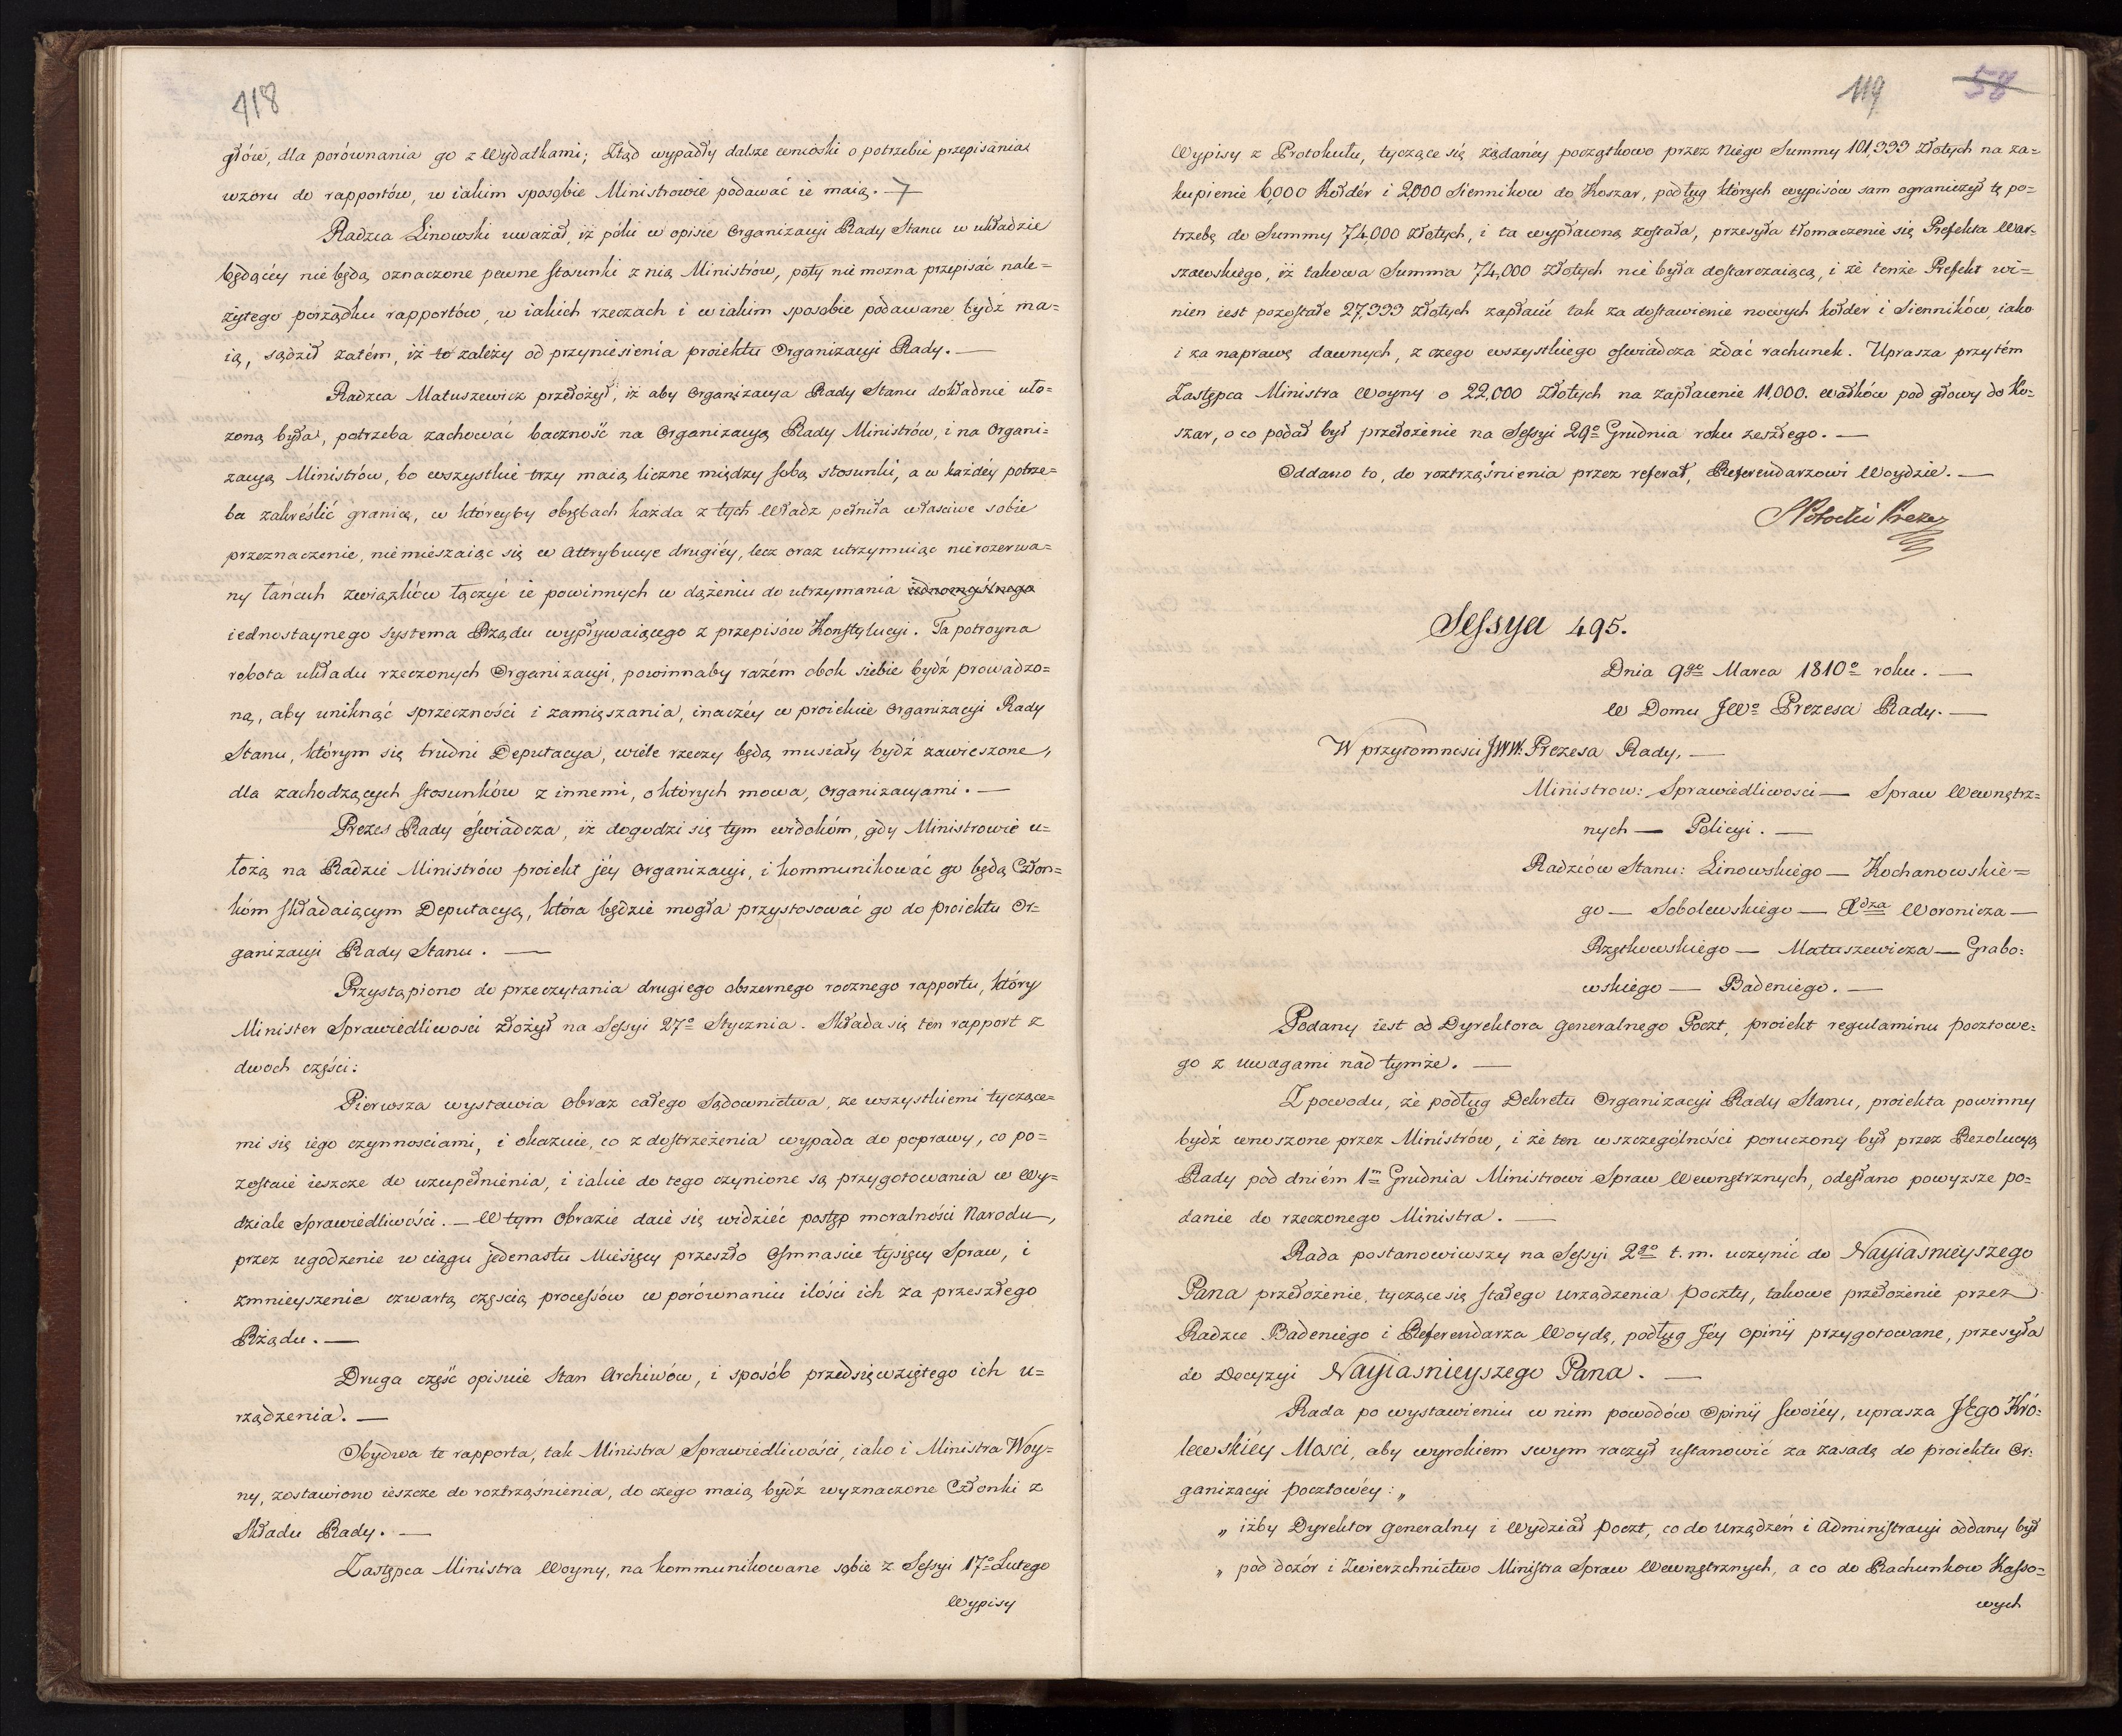 118
głów, dla porównania go z Wydatkami; Ztąd wypadły dalsze wnioski o potrzebie przepisania
wzoru do rapportów, w iakim sposobie Ministrowie podawać ie maią. —
Radzca Linowski uważał, iż póki w opisie Organizacyi Rady Stanu w układzie
będącéy nie będą oznaczone pewne stosunki z nią Ministrów, poty nie można przepisać nale=
żytego porządku rapportów, w iakich rzeczach i w iakim sposobie podawane bydź ma=
ią, sądził zatém, iż to zależy od przyniesienia proiektu Organizacyi Rady. —
Radzca Matuszewicz przełożył, iż aby Organizacya Rady Stanu dokładnie uło=
zoną była, potrzeba zachować baczność na Organizacyą Rady Ministrów, i na Organi=
zacyą Ministrów, bo wszystkie trzy maią liczne między sobą stosunki, a w każdéy potrze=
ba zakreślić granicę, w któreyby obrębach każda z tych Władz pełniła właściwe sobie
przeznaczenie, niemieszaiąc się w Attrybucye drugiéy, lecz oraz utrzymuiąc nierozerwa=
ny łańcuh związków łączyć ie powinnych w dążeniu do utrzymania iednomyślnego
iednostaynego systema Rządu wypływaiącego z przepisów Konstytucyi. Ta potroyna
robota układu rzeczonych Organizacyi, powinnaby razém obok siebie bydź prowadzo=
ną, aby uniknąć sprzeczności i zamięszania, inaczéy w proiekcie Organizacyi Rady
Stanu, którym się trudni Deputacya, wiele rzeczy będą musiały bydź zawieszone,
dla zachodzących stosunków z innemi, o których mowa, Organizacyami. —
Prezes Rady oświadcza, iż dogodzi się tym widokóm, gdy Ministrowie u=
łożą na Radzie Ministrów proiekt jéy Organizacyi, i kommunikować go będą Człon=
kóm składaiącym Deputacyą, która będzie mogła przystosować go do proiektu Or=
ganizacyi Rady Stanu. —
Przystąpiono do przeczytania drugiego obszernego rocznego rapportu, który
Minister Sprawiedliwości złożył na Sessyi 27º Stycznia. Składa się ten rapport z
dwoch części:
Pierwsza wystawia Obraz całego Sądownictwa, ze wszystkiemi tyczące=
mi się iego czynnościami, i okazuie, co z dostrzeżenia wypada do poprawy, co po=
zostaie ieszcze do uzupełnienia, i iakie do tego czynione są przygotowania w Wy=
dziale Sprawiedliwości. — W tym Obrazie daie się widzieć postęp moralności Narodu,
przez ugodzenie w ciągu jedenastu Miesięcy przeszło Osmnaście tysięcy Spraw, i
zmnieyszenie czwartą częścią processów w porównaniu ilości ich za przeszłego
Rządu. —
Druga część opisuie Stan Archiwów, i sposób przedsięwziętego ich u=
rządzenia. —
Obydwa te rapporta, tak Ministra Sprawiedliwości, iako i Ministra Woy=
ny, zostawiono ieszcze do roztrząśnienia, do czego maią bydź wyznaczone Członki z
Składu Rady. —
Zastępca Ministra Woyny, na kommunikowane sobie z Sessyi 17º Lutego
Wypisy
119 58
Wypisy z Protokułu, tyczące się żądanéy początkowo przez Niego Summy 101,999 Złotych na za=
kupienie 6,000 Kołdér i 2,000 Siennikow do Koszar, podług których wypisów sam ograniczył tę po=
trzebę do Summy 74,000 Złotych, i ta wypłaconą została, przesyła tłomaczenie się Prefekta War=
szawskiego, iż takowa Summa 74,000 Złotych nie była dostarczaiącą, i że tenże Prefekt wi=
nien iest pozostałe 27,999 Złotych zapłacić tak za dostawienie nowych kołder i Sienników, iako
i za naprawę dawnych, z czego wszystkiego oświadcza zdać rachunek. Uprasza przytém
Zastępca Ministra Woyny o 22,000 Złotych na zapłacenie 11,000. wałków pod głowy do Ko=
szar, o co podał był przełożenie na Sessyi 29º Grudnia roku zeszłego. —
Oddano to, do roztrząśnienia przez referat, Referendarzowi Woydzie. —
SPotocki Prezez
Sessya 495.
Dnia 9go Marca 1810º roku. —
W Domu JWº Prezesa Rady. —
W przytomności JWW. Prezesa Rady, —
Ministrow: Sprawiedliwości — Spraw Wewnętrz=
nych — Policyi. —
Radzców Stanu: Linowskiego — Kochanowskie=
go — Sobolewskiego — Xdza Woronicza —
Rzętkowskiego — Matuszewicza — Grabo=
wskiego — Badeniego. —
Podany iest od Dyrektora Generalnego Poczt, proiekt regulaminu pocztowe=
go z uwagami nad tymże. —
Z powodu, że podług Dekretu Organizacyi Rady Stanu, proiekta powinny
bydź wnoszone przez Ministrów, i że ten w szczególności poruczony był przez Rezolucyą
Rady pod dniém 1m Grudnia Ministrowi Spraw Wewnętrznych, odesłano powyższe po=
danie do rzeczonego Ministra. —
Rada postanowiwszy na Sessyi 2go t. m. uczynić do Nayiaśnieyszego
Pana przełożenie, tyczące się stałego urządzenia Poczty, takowe przełożenie przez
Radzcę Badeniego i Referendarza Woydę, podług Jéy Opinii przygotowane, przesyła
do Decyzyi Nayiaśnieyszego Pana. —
Rada po wystawieniu w nim powodów Opinii swoiéy, uprasza JEgo Kró=
lewskiéy Mosci, aby wyrokiem swym raczył ustanowić za zasadę do proiektu Or=
ganizacyi pocztowéy: „
„ iżby Dyrektor Generalny i Wydział Poczt, co do Urządzeń i Administracyi oddany był
„ pod dozór i Zwierzchnictwo Ministra Spraw Wewnętrznych, a co do Rachunkow Kasso=
wych